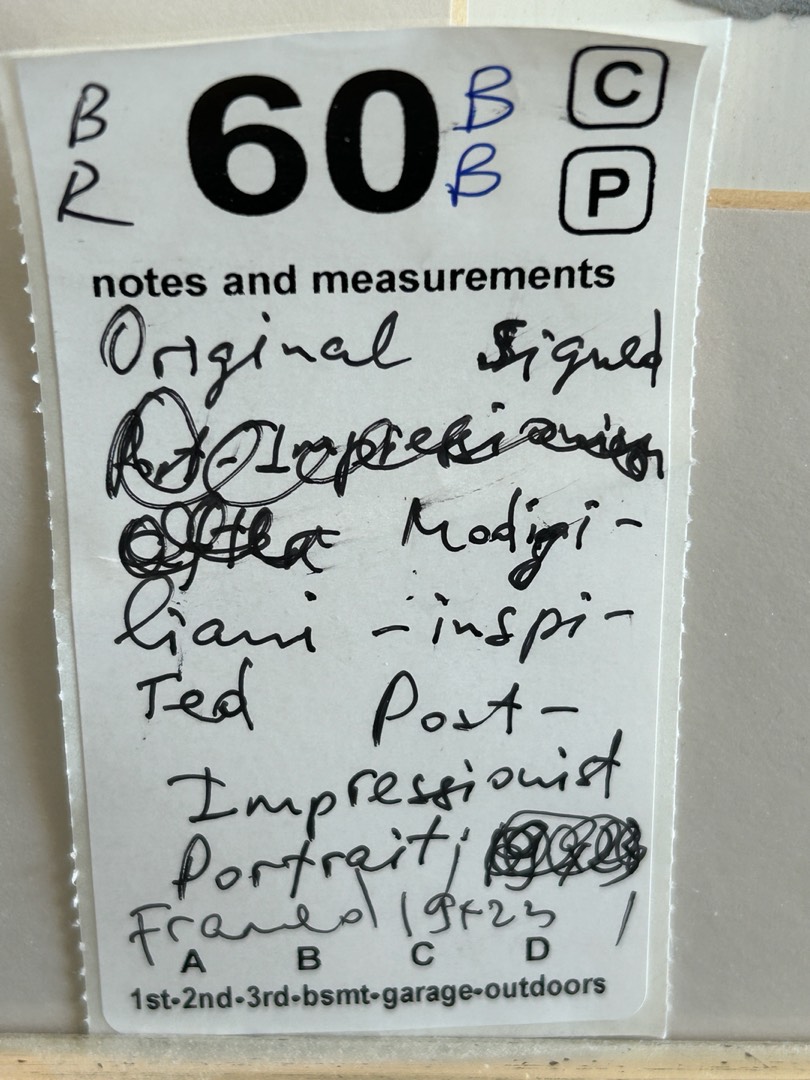 B 60 B C
R B P
notes and measurements
Original Signed
Post-Impressionism
after Modigi-
liani - inspi-
red Post-
Impressionist
Portrait;
Framed 19x23
A B C D
1st-2nd-3rd-bsmt-garage-outdoors